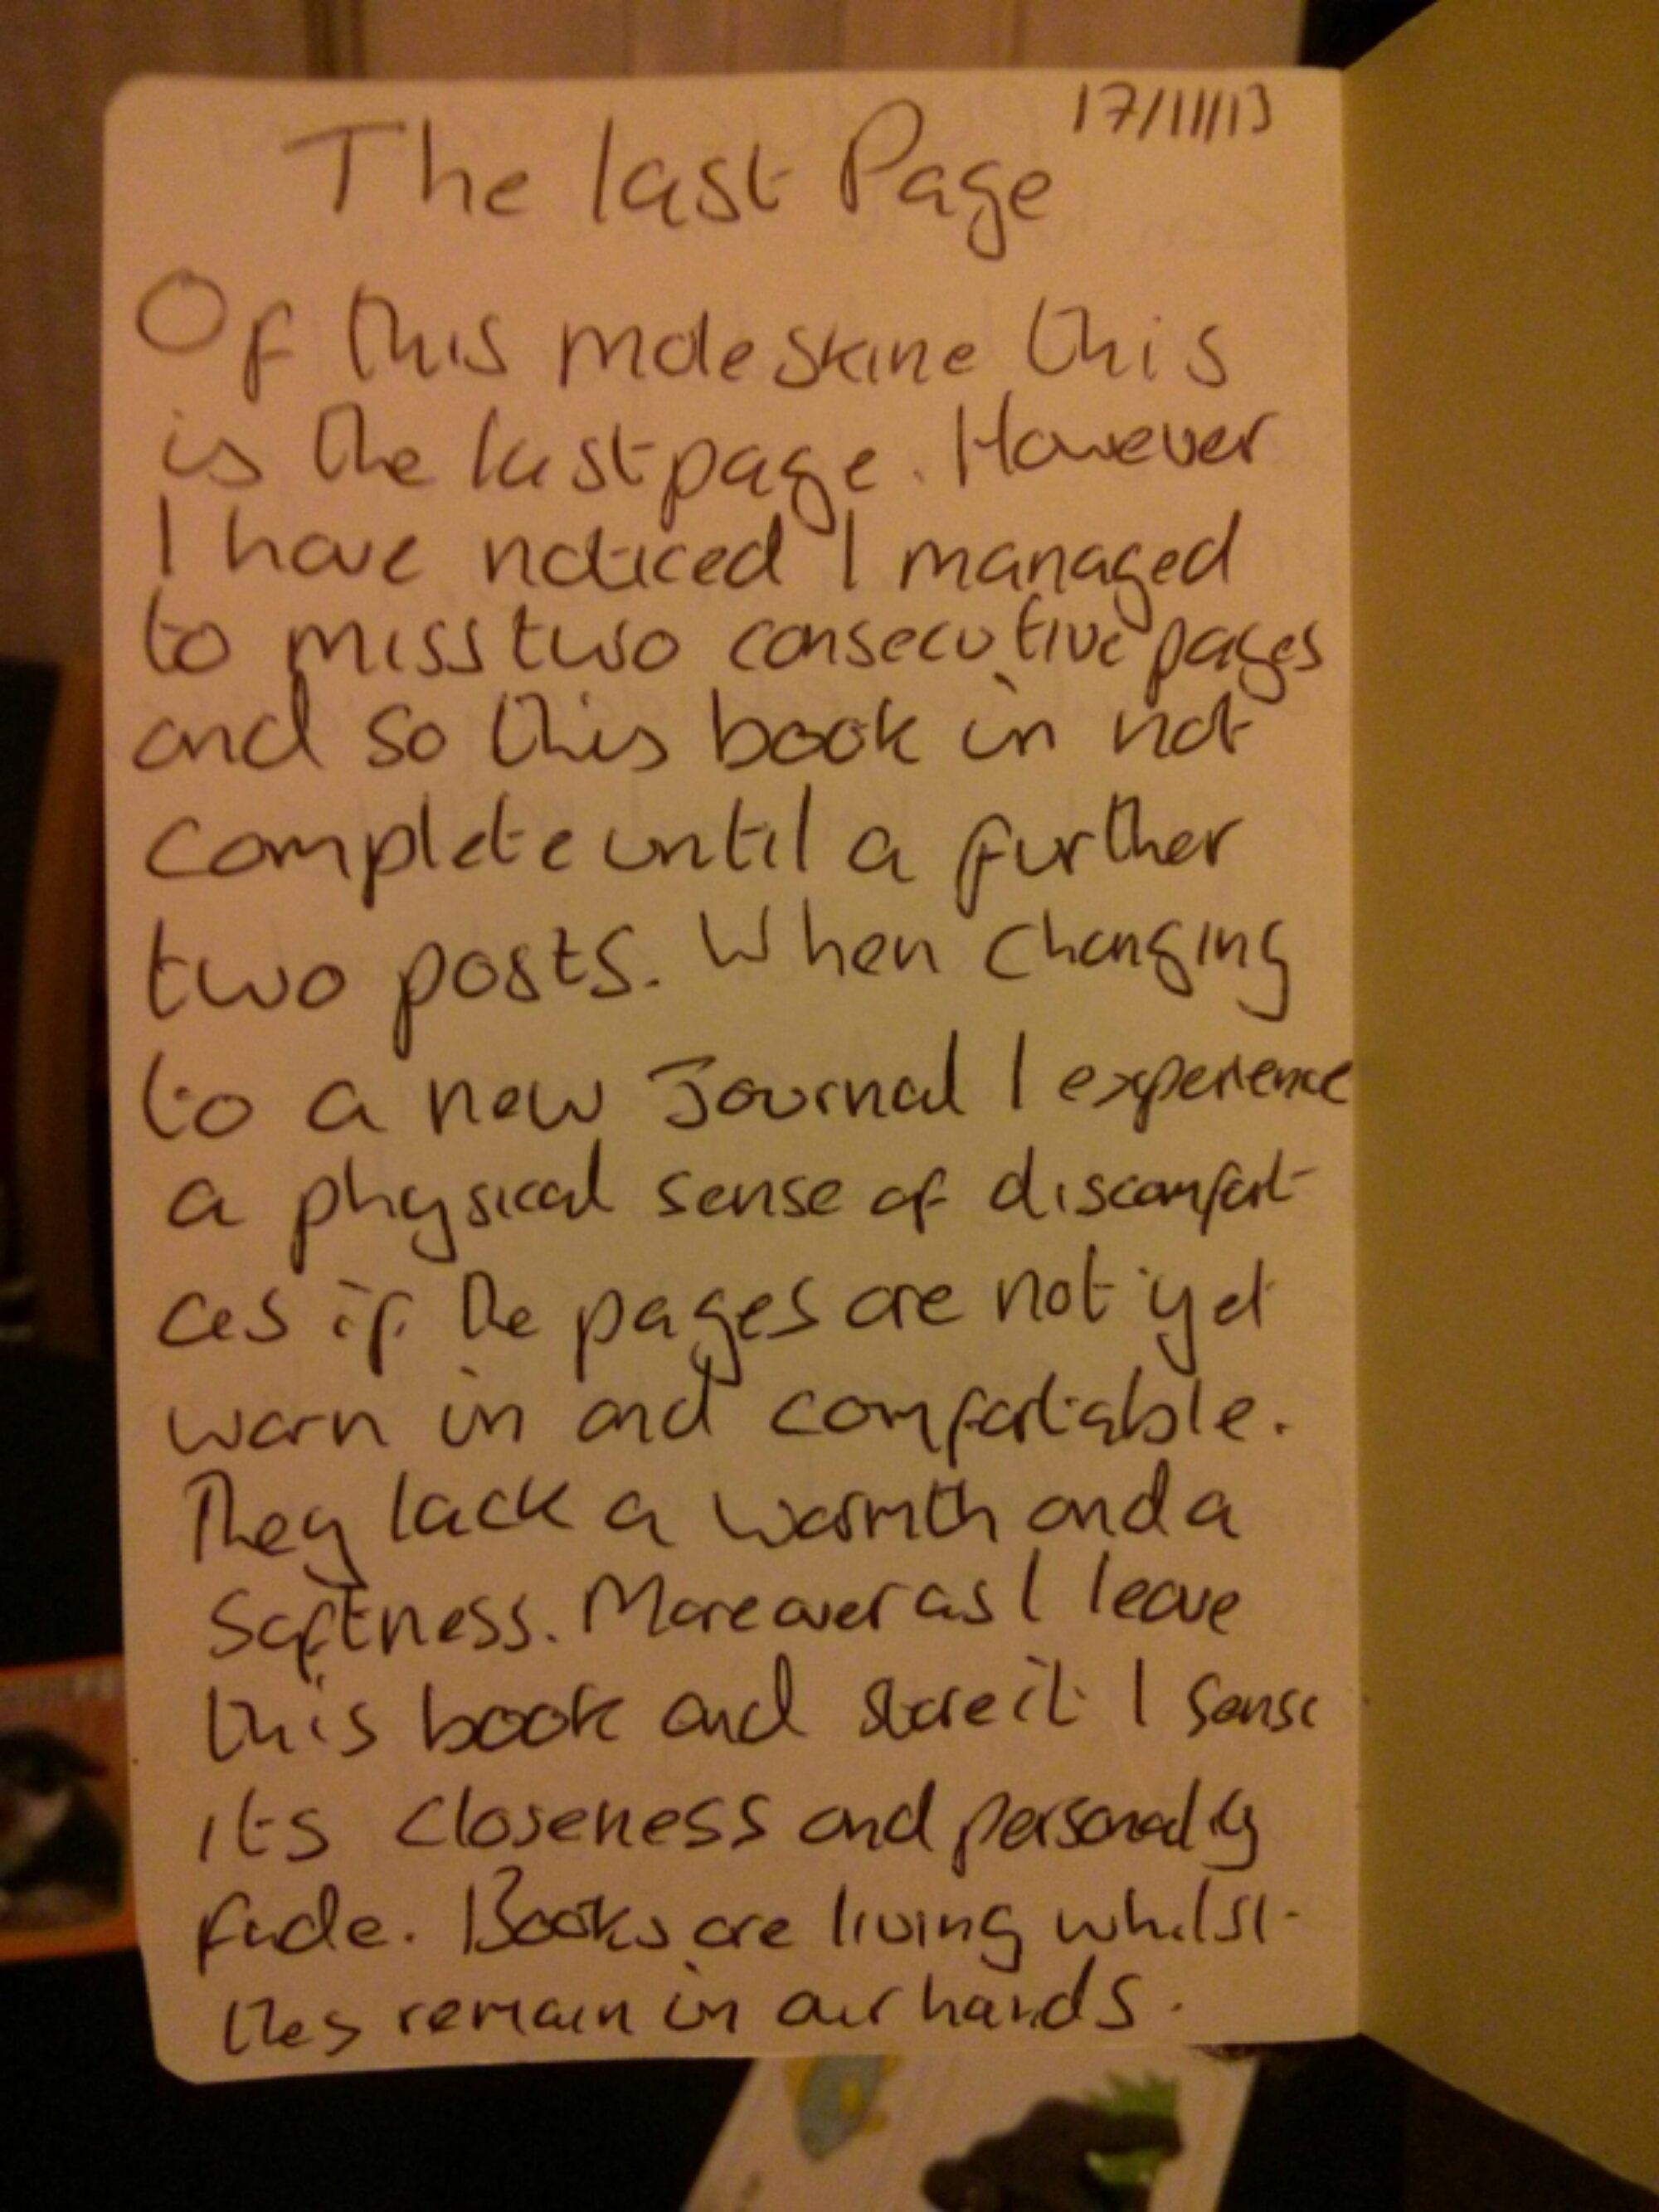 17/11/13
The last Page
Of this moleskine this
is the last page. However
I have noticed I managed
to miss two consecutive pages
and so this book in not
complete until a further
two posts. When changing
to a new Journal I experience
a physical sense of discomfort
as if the pages are not yet
worn in and comfortable.
They lack a warmth and a
Softness. Moreover as I leave
this book and store it I sense
its closeness and personality
fade. Books are living whilst
they remain in our hands.